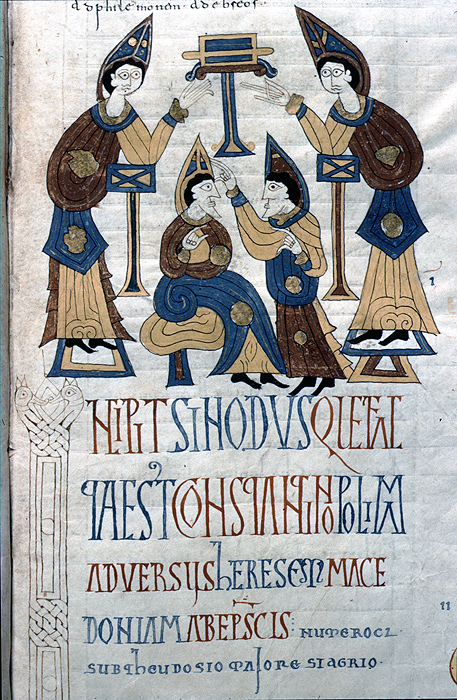 ad philemonen. ad ebreos.
INCIPIT SINODVS QUE FAC
TA EST CONSTANTINOPOLIM
ADVERSUS hERESEM MACE
DONIAM AB EPSCIS: NUMERO CL.
SUB TheUDOSIO MAIORE SIAGRIO.